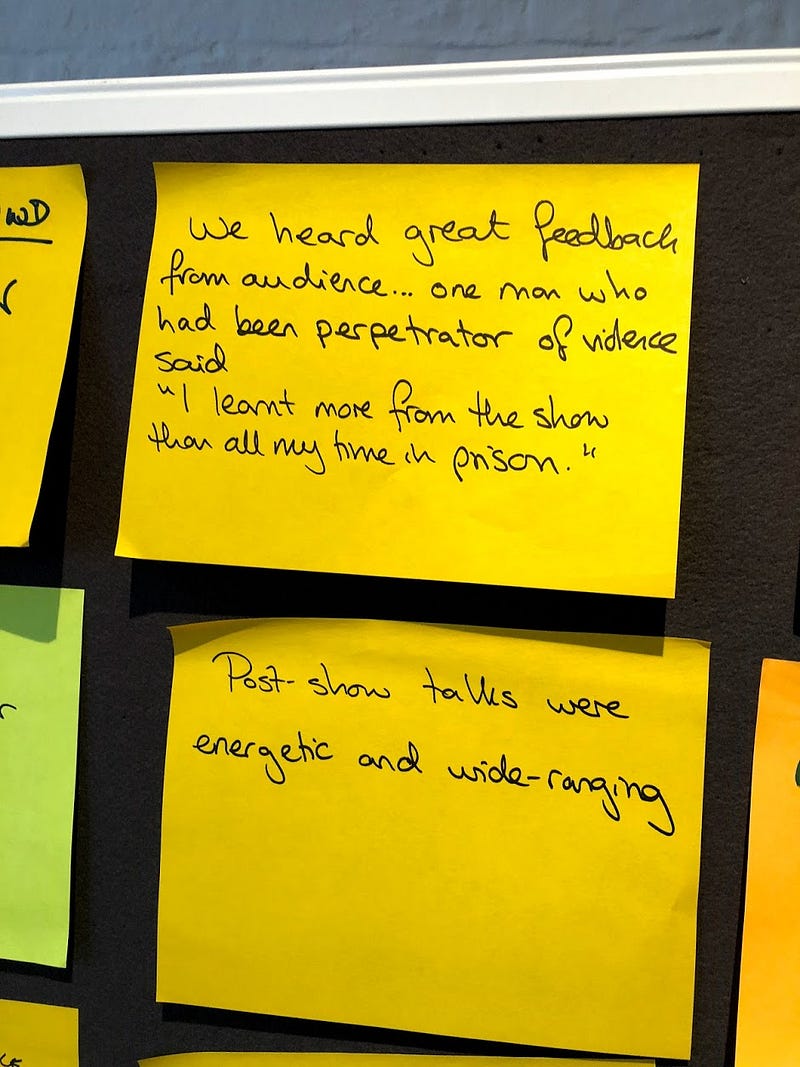 We heard great feedback
from audience... one man who
had been perpetrator of violence
said
"I learnt more from the show
than all my time in prison."
Post-show talks were
energetic and wide-ranging